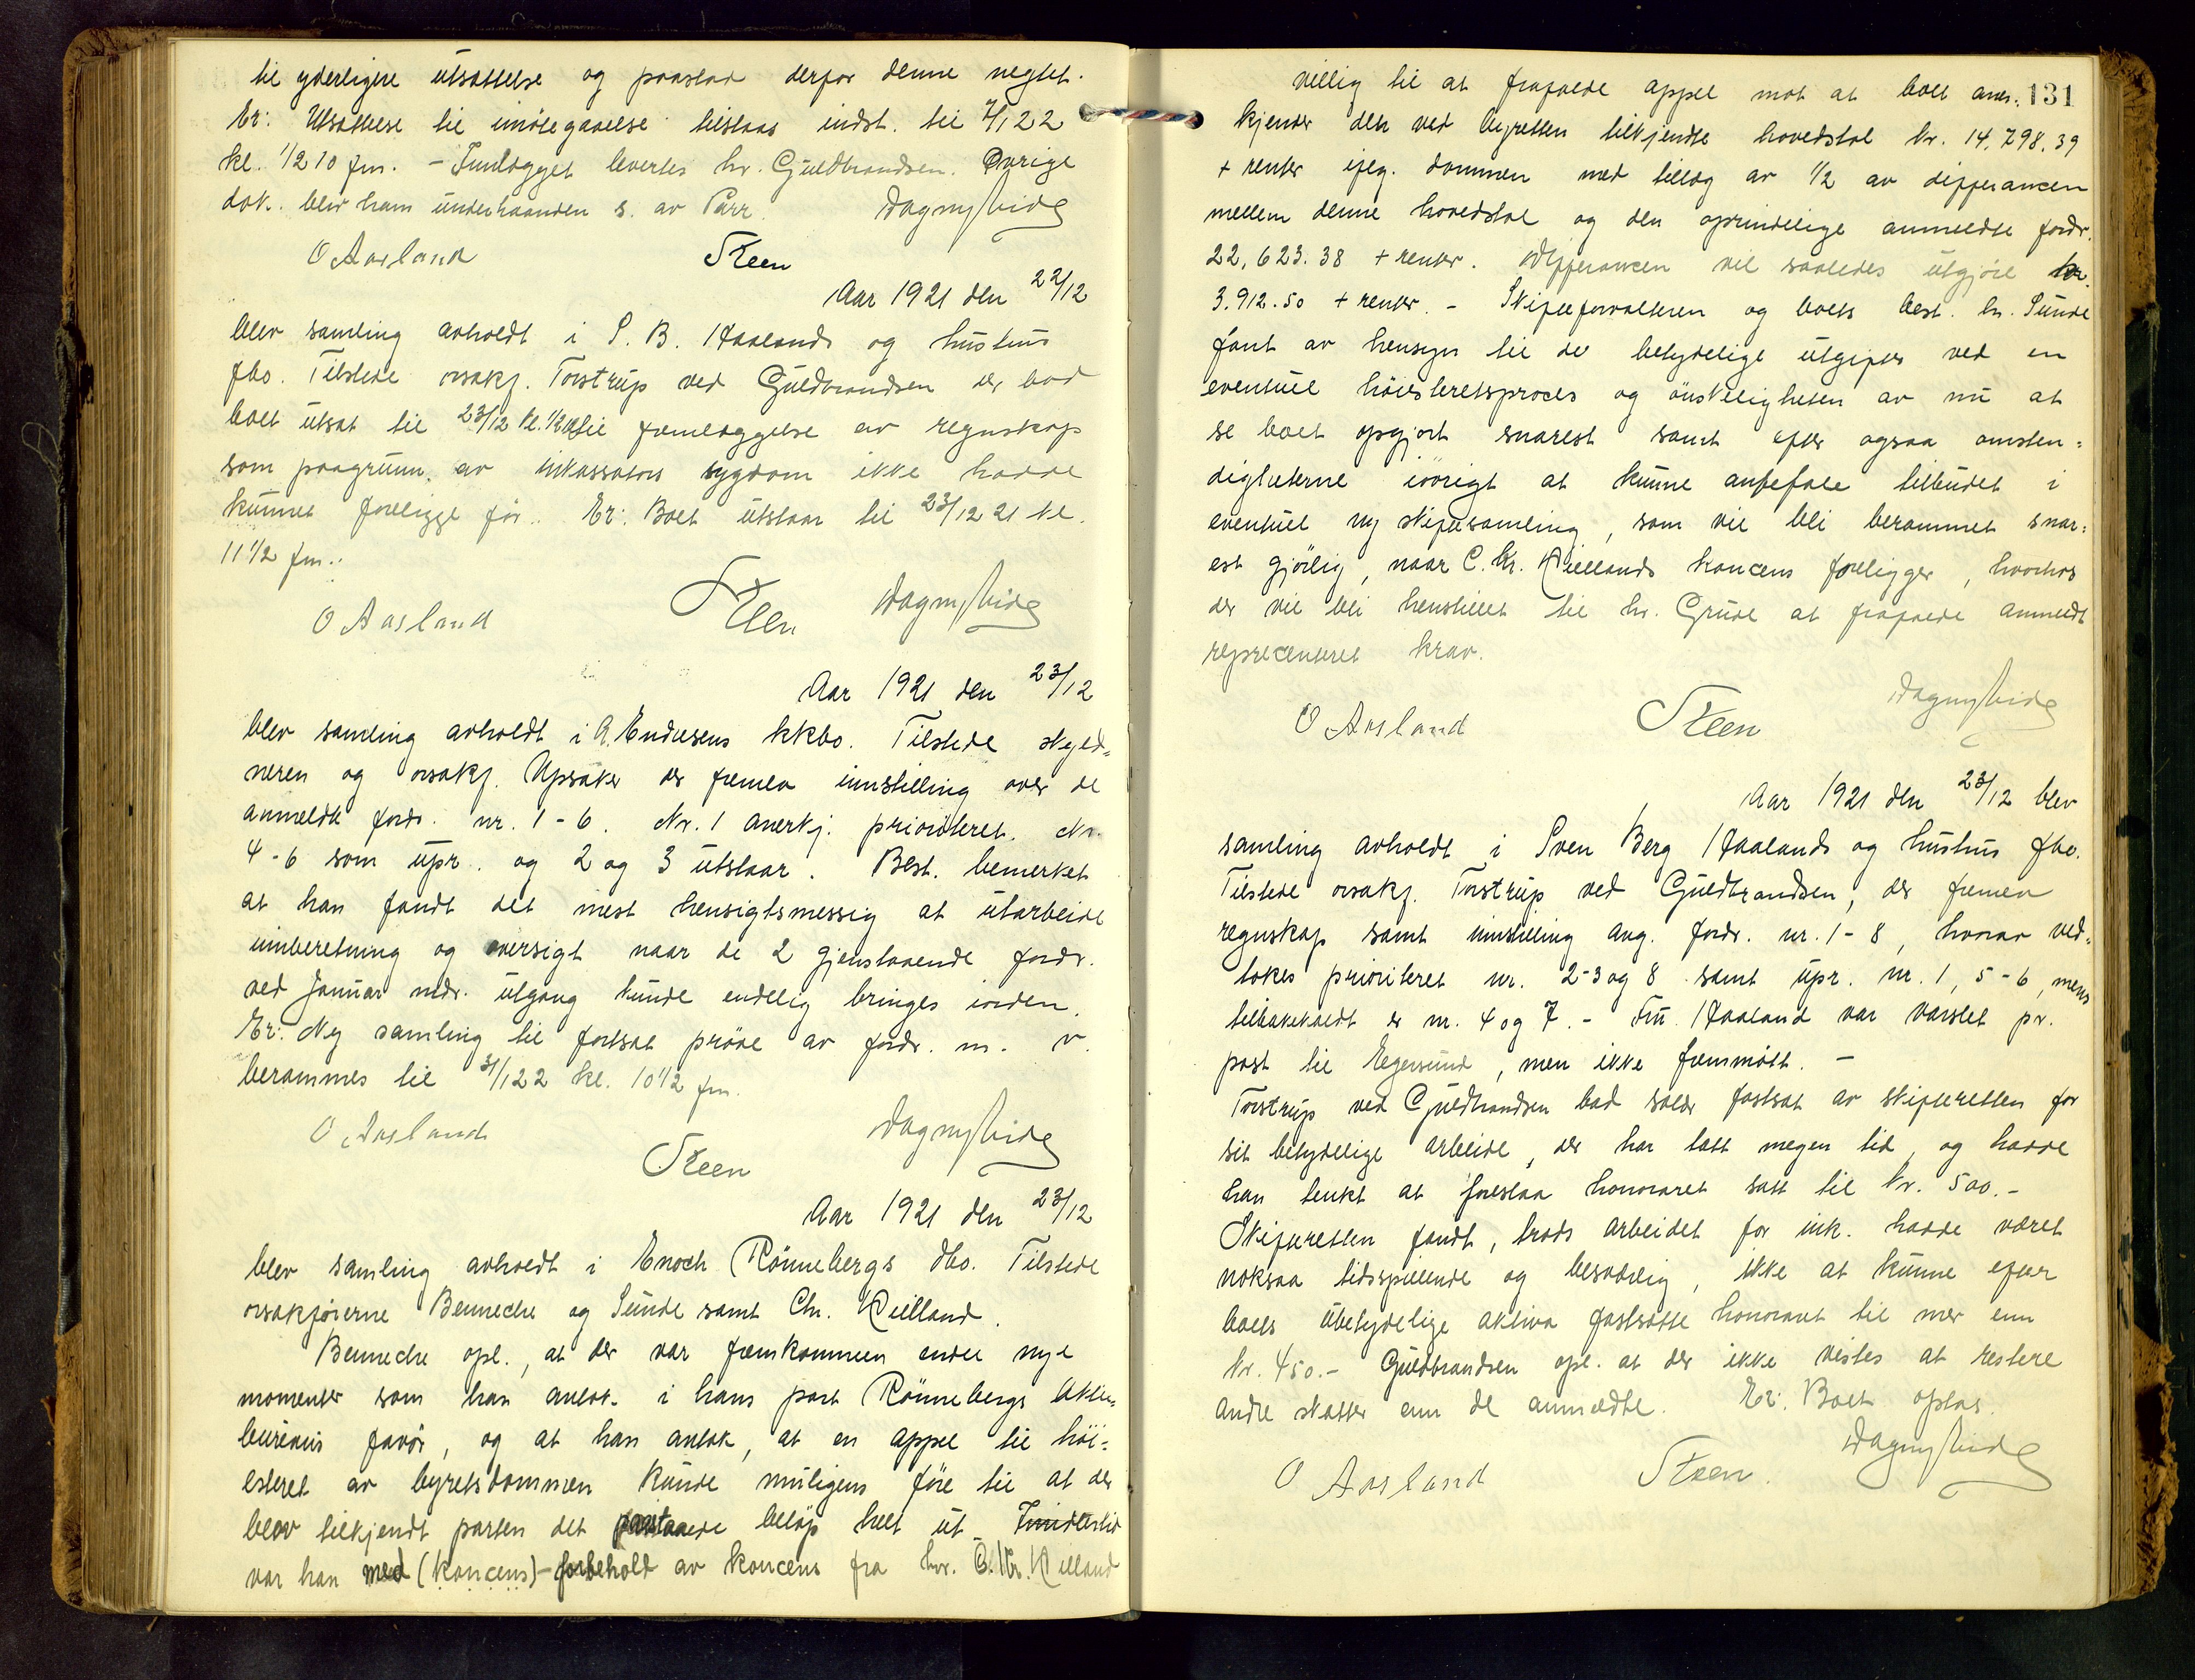 til yderligere utsættelse og paastod derfor denne negtet.
Er: Utsættelse til imøtegaaelse tilstaas indst. til 7/1 22
kl. 1/2 10 fm. - Innlægget levertes hr. Guldbrandsen. Øvrige
dok. blev ham underhaanden s. av Parr. Dagny Eide
O Aasland Steen
Aar 1921 den 22/12
blev samling avholdt i S. B. Haalands og hustrus
fbo. Tilstede orsakf. Torstrup ved Guldbrandsen der bad
boet utsat til 23/12 kl. til fremlæggelse av regnskap
som paagrunn. av inkassators sygdom ikke hadde
kunnet foreligge før. Er: Boet utstaar til 23/12 21 kl.
11 1/2 fm.
O Aasland Steen Dagny Eide
Aar 1921 den 23/12
blev samling avholdt i A. Endresens kkbo. Tilstede skyld-
neren og orsakf. Opsaker der fremla innstilling over de
anmeldte fordr. nr. 1 - 6. Nr. 1 anerkj. prioriteret. Nr.
4 - 6 som upr. og 2 og 3 utstaar. Best. bemerket
at han fandt det mest hensigtsmessig at utarbeide
innberetning og oversigt naar de 2 gjenstaaende fordr.
ved Januar mdr. utgang kunde endelig bringes iorden.
Er: Ny samling til fortsat prøve av fordr. m. v.
berammes til 31/1 22 kl. 10 1/2 fm.
O Aasland Steen Dagny Eide
Aar 1921 den 23/12
blev samling avholdt i Enoch Rönnebergs dbo. Tilstede
orsakførerne Benneche og Sunde samt Chr. Kielland.
Benneche opl., at der var fremkommen endel nye
momenter som han antok i hans part Rönnebergs Aktie-
bureaus favør, og at han antok, at en appel til höi-
esteret av byretsdommen kunde muligens føre til at der
blev tilkjendt parten det paastaaede beløp helt ut. Imidlertid
var han med (koncens)-forbehold av koncens fra hr. C. Kr. Kielland
131
villig til at frafalde appel mot at boet aner-
kjender den ved byretten tilkjendte hovedstol kr. 14,798,39
+ renter iflg. dommen med tillæg av 1/2 av differancen
mellem denne hovedstol og den oprindelige anmeldte fordr.
22,623.38 + renter. Differancen vil saaledes utgjøre kr.
3.912.50 + renter. - Skifteforvalteren og boets best. hr. Sunde
fant av hensyn til de betydelige utgifter ved en
eventuel høiesteretsproces og ønskeligheten av nu at
se boet opgjort snarest samt efter ogsaa omsten-
dighetene iövrigt at kunne anbefale tilbudet i
eventuel ny skiftesamling, som vil bli berammet snar-
est gjørlig, naar C. Kr. Kiellands koncens foreligger, hvorhos
der vil bli henstillet til hr. Grude at frafalde anmeldt
reprecenteret krav.
O Aasland Steen Dagny Eide
Aar 1921 den 23/12 blev
samling avholdt i Sven Berg Haalands og hustrus fbo.
Tilstede orsakf. Torstrup ved Guldbrandsen, der fremla
regnskap samt innstilling ang. fordr. nr. 1 - 8, hvorav ved-
tokes prioriteret nr. 2-3 og 8 samt upr. nr. 1, 5 - 6, mens
tilbakekaldt er nr. 4 og 7. - Fru Haaland var varslet pr.
post til Egersund, men ikke fremmøtt. -
Torstrup ved Guldbrandsen bad salær fastsat av skifteretten for
sit betydelige arbeide, der har tatt megen tid, og hadde
han tenkt at foreslaa honoraret satt til kr. 500.-
Skifteretten fandt, trods arbeidet for ink. hadde været
noksaa tidsspillende og besværlig, ikke at kunne efter
boets ubetydelige aktiva fastsætte honoraret til mer enn
kr. 450.- Guldbrandsen opl. at der ikke vistes at restere
andre skatter enn de anmeldte. Er: Boet optas.
O Aasland Steen. Dagny Eide